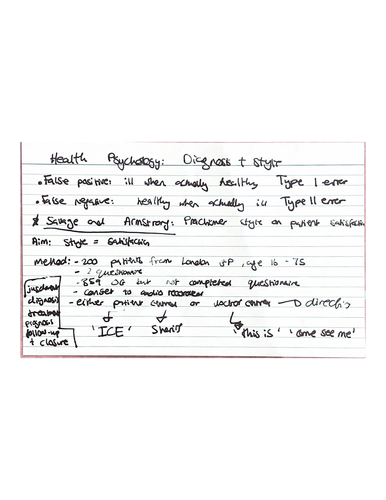 Health Psychology: Diagnosis + Style
• False positive: ill when actually healthy, Type I error
• False negative: healthy when actually ill Type II error
Savage and Armstrong: Practitioner style on patient satisfaction
Aim: Style = Satisfaction
method: - 200 patients from London GP, age 16 - 75
- 2 questionaire
- 359 OG but not completed questionaire
- consent to audio recorded
- either patient centred or doctor centred → directing
'ICE' Sharing 'this is' 'come see me'
judgement
diagnosis
treatment
prognosis
follow-up
+ closure